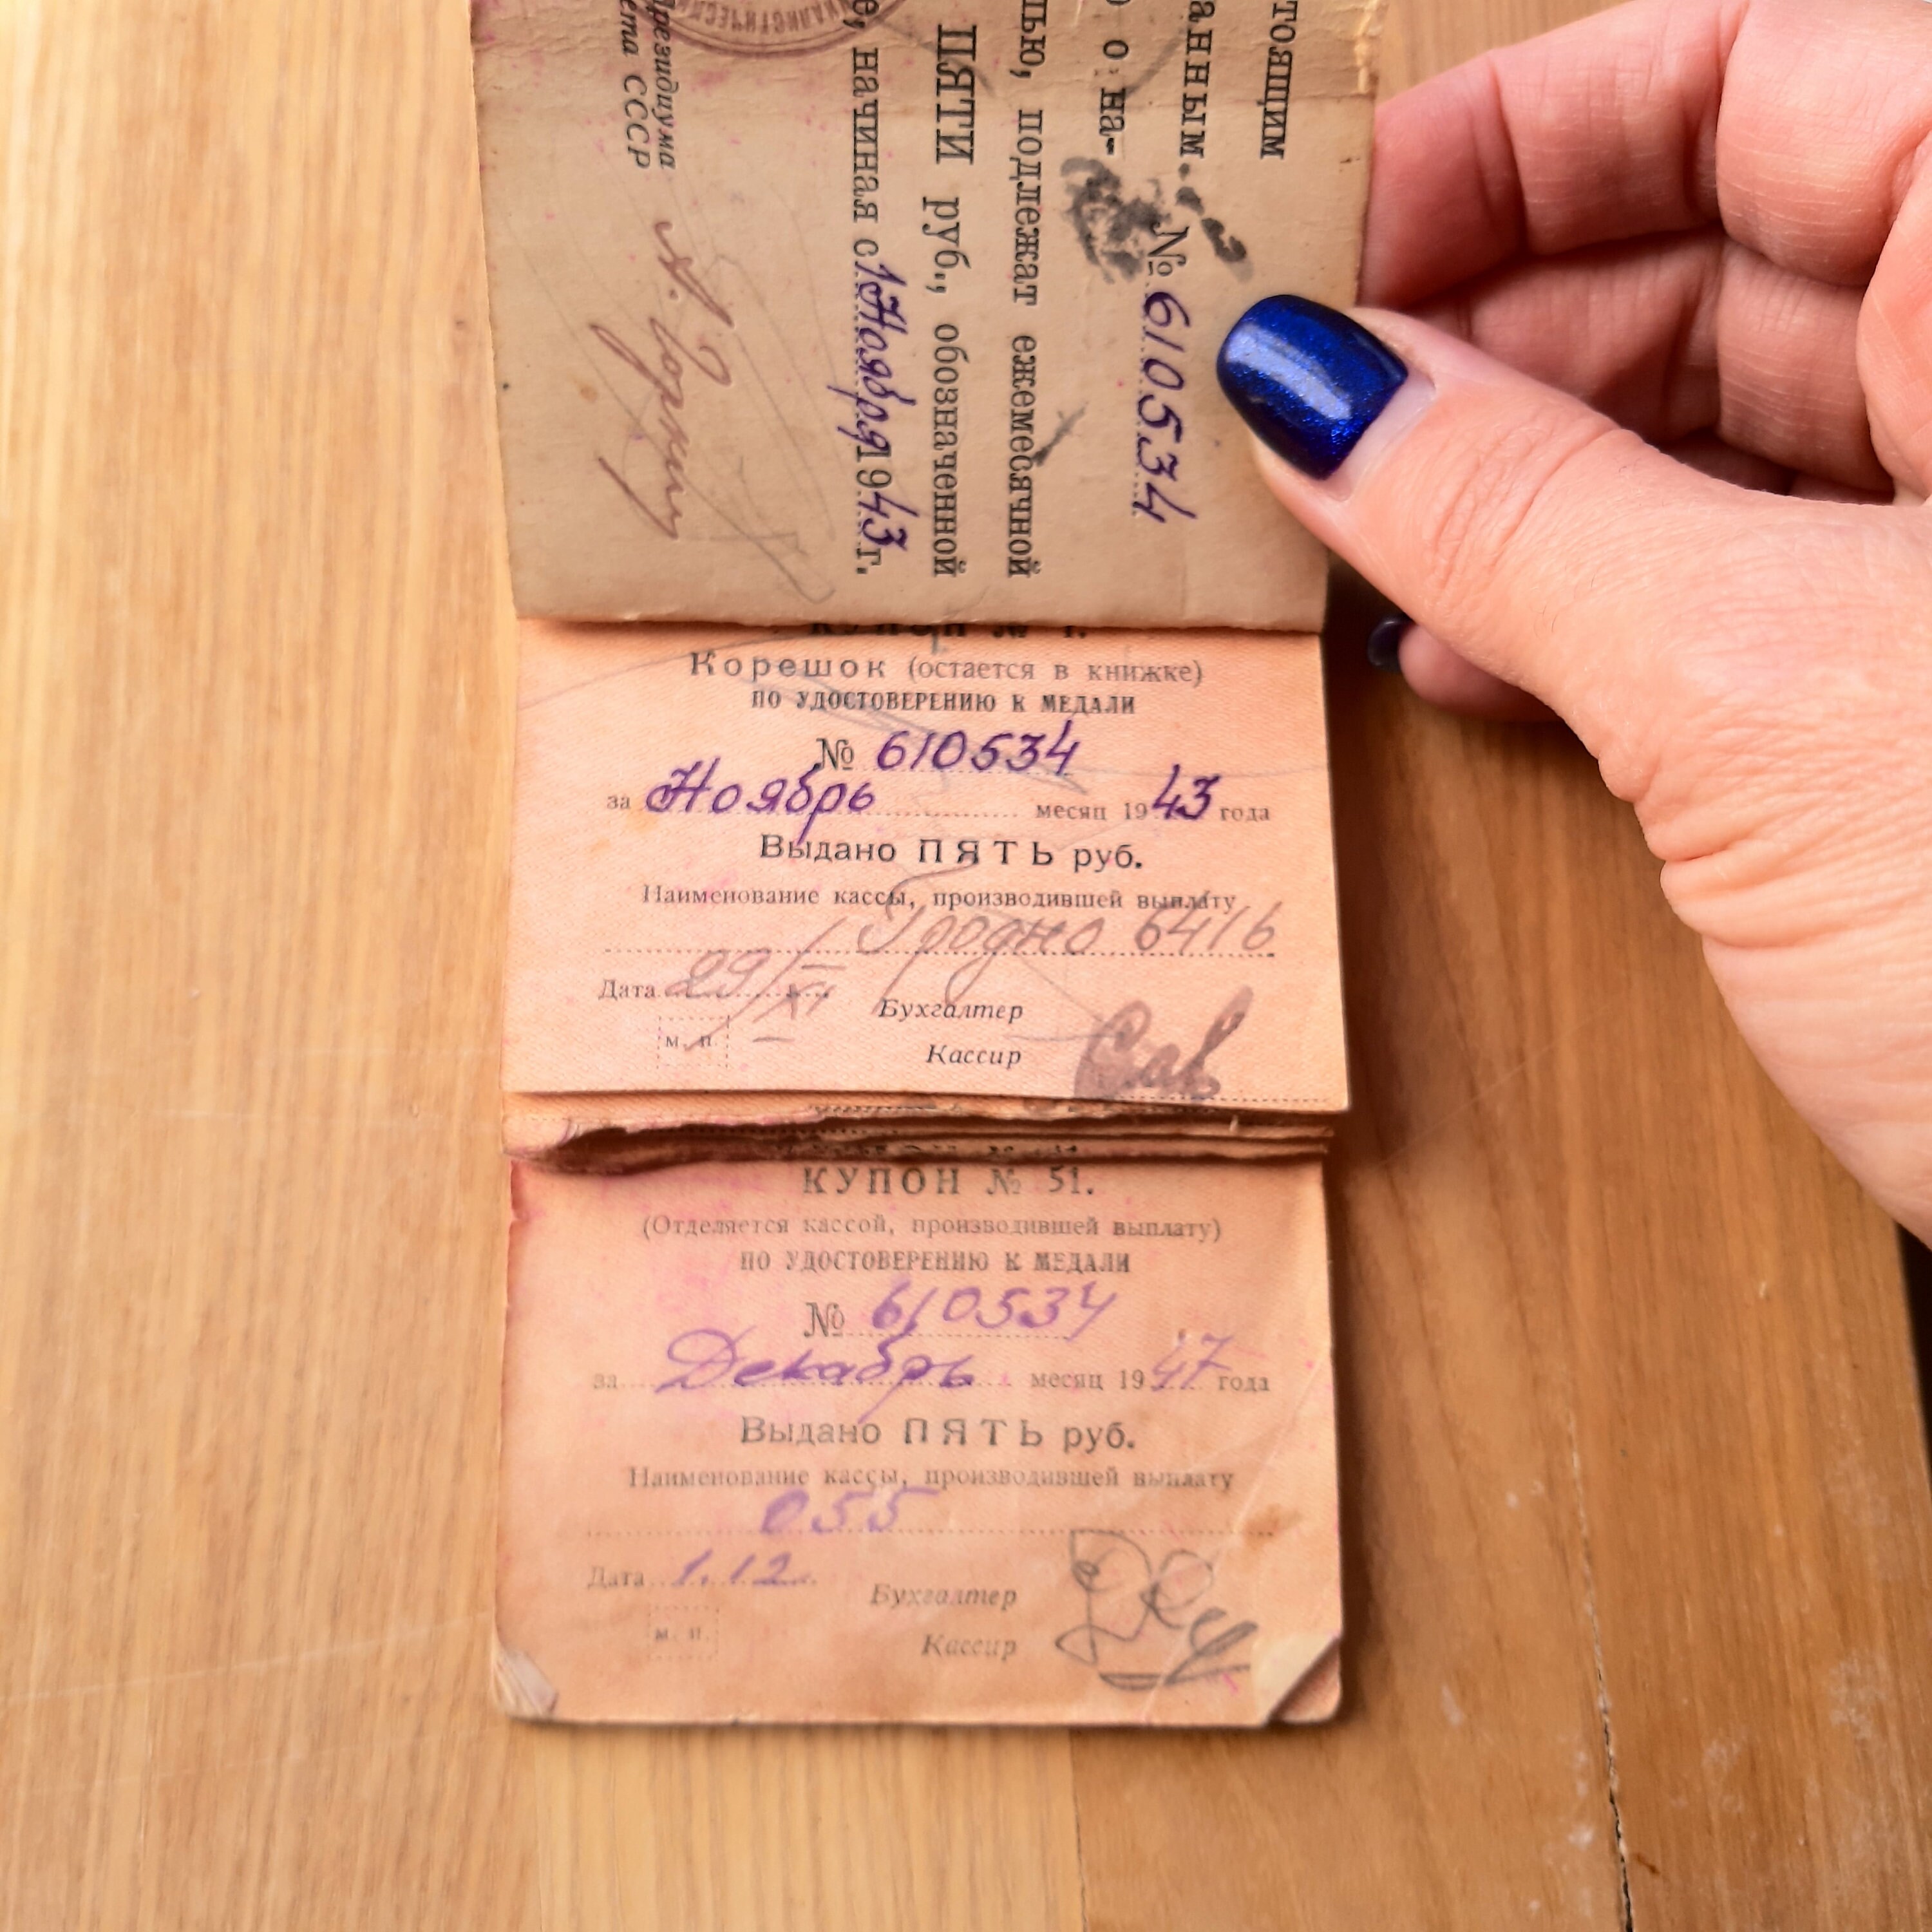 тоящим
анным № 610534
о на-
лью, подлежат ежемесячной
ПЯТИ руб., обозначенной
е, начиная с 1 Ноября 1943 г.
Президиума
ета СССР А. Горкин
КУПОН № 1.
Корешок (остается в книжке)
ПО УДОСТОВЕРЕНИЮ К МЕДАЛИ
№ 610534
за Ноябрь месяц 1943 года
Выдано ПЯТЬ руб.
Наименование кассы, производившей выплату
Гродно 6416
Дата 29/XI
Бухгалтер
м. п.
Кассир
КУПОН № 51.
(Отделяется кассой, производившей выплату)
ПО УДОСТОВЕРЕНИЮ К МЕДАЛИ
№ 610534
за Декабрь месяц 1947 года
Выдано ПЯТЬ руб.
Наименование кассы, производившей выплату
055
Дата 1.12
Бухгалтер
м. п.
Кассир